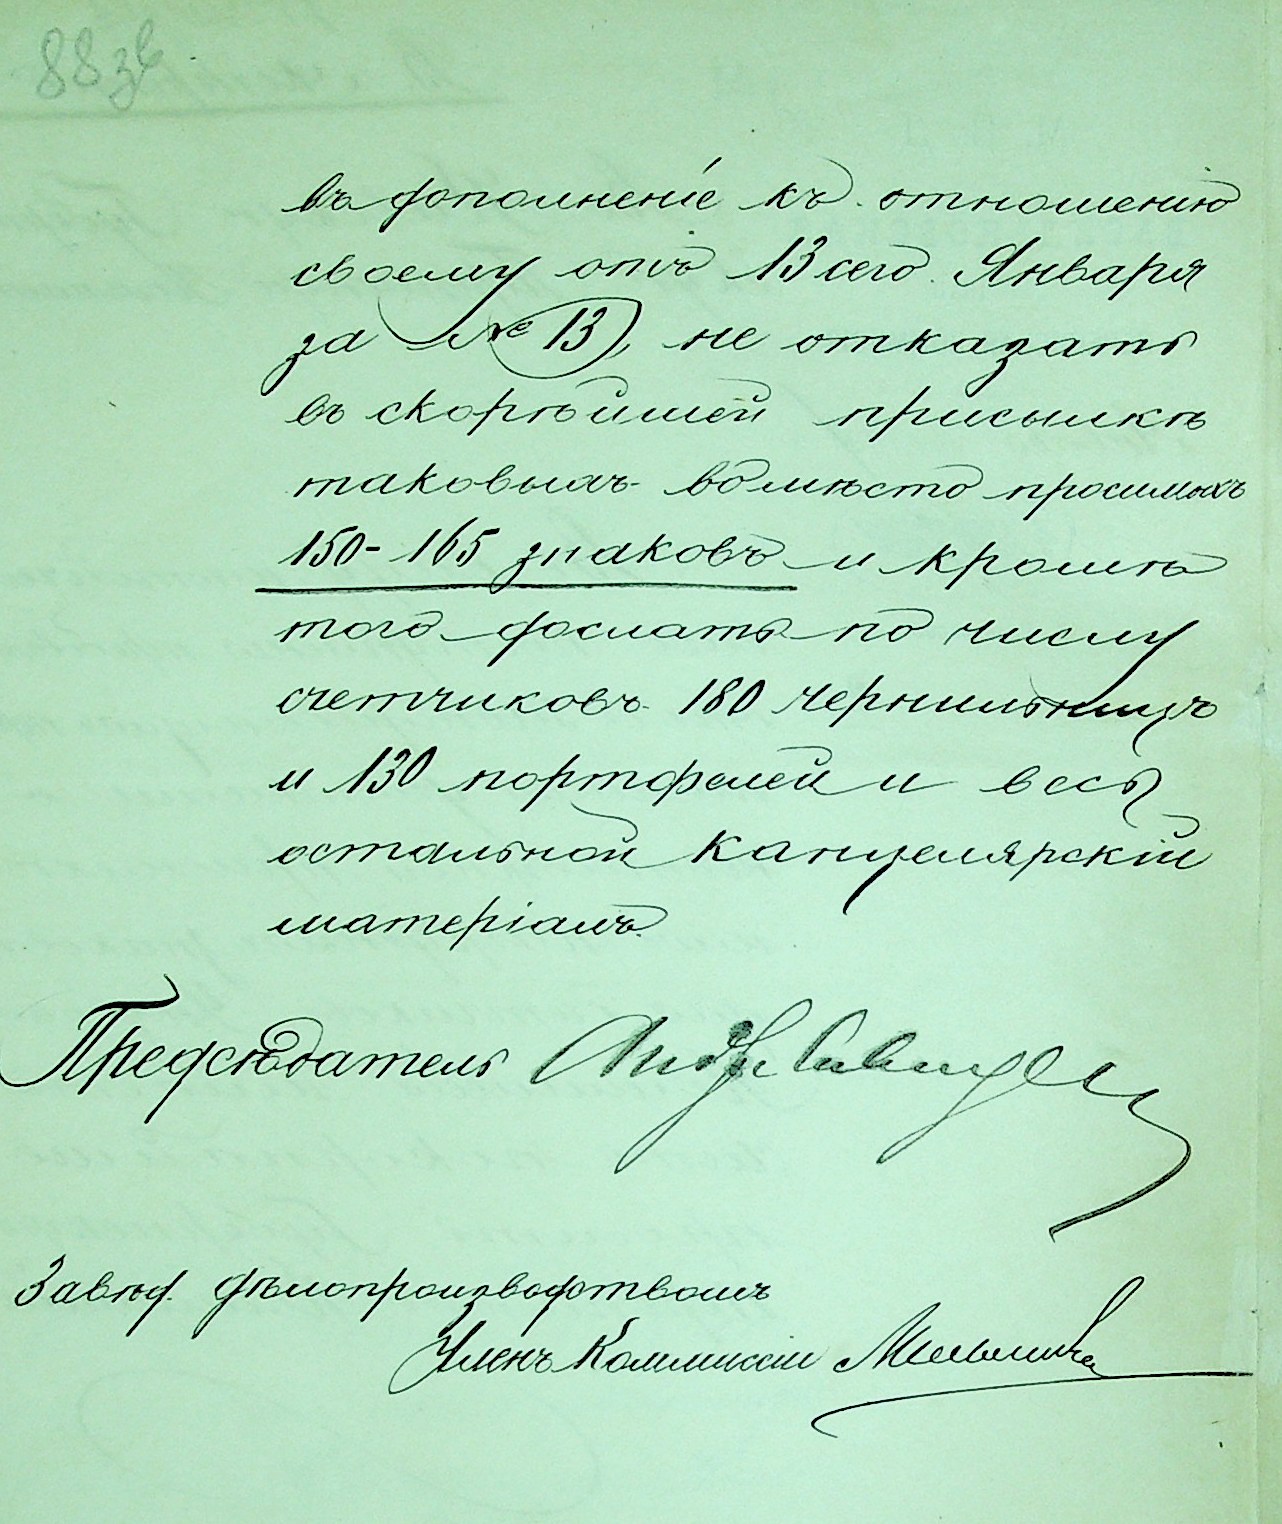 въ дополненіе къ отношенію
своему отъ 13 сего Января
за № 13, не отказать
въ скорѣйшей присылкѣ
таковымъ вомѣсто просимыхъ
150-165 знаковъ и кромѣ
того дослать по числу
счетчиковъ 180 чернильницъ
и 130 портфелей и весь
остальной канцелярскій
матеріалъ.
Предсѣдатель
Завѣд. дѣлопроизводствомъ
Членъ Коммиссіи